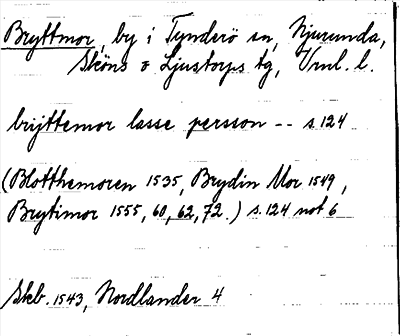 Bryttmor, by i Tynderö sn, Njurunda,
Sköns o Ljustorps tg, Vml. l.
brijttemor lasse persson -- s.124
(Blotthemoren 1535, Brydin Mor 1549,
Brytimor 1555, 60, 62, 72.) s.124 not 6
Skb. 1543, Nordlander 4